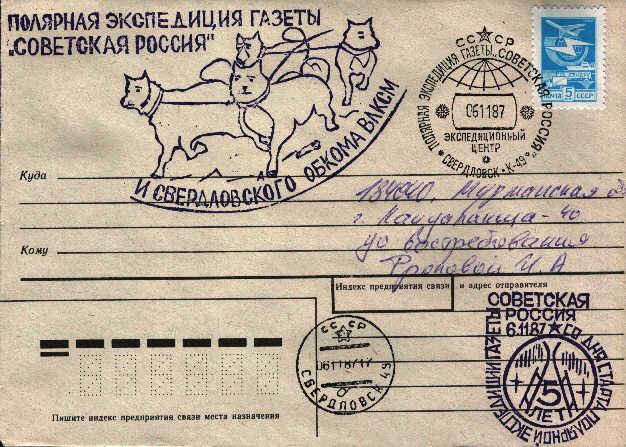 ПОЛЯРНАЯ ЭКСПЕДИЦИЯ ГАЗЕТЫ
„СОВЕТСКАЯ РОССИЯ"
И СВЕРДЛОВСКОГО ОБКОМА ВЛКСМ
СССР
ПОЛЯРНАЯ ЭКСПЕДИЦИЯ ГАЗЕТЫ „СОВЕТСКАЯ РОССИЯ"
061187
ЭКСПЕДИЦИОННЫЙ
ЦЕНТР
СВЕРДЛОВСК · К-49
5
СССР
Куда
184040, Мурманская
г. Кандалакша-40
Кому
до востребования
И. А
Индекс предприятия связи и адрес отправителя
СССР
06118717
СВЕРДЛОВСК 49
СОВЕТСКАЯ
РОССИЯ
6.1187
СО ДНЯ СТАРТА ПОЛЯРНОЙ ЭКСПЕДИЦИИ ГАЗЕТЫ
5
ЛЕТ
Пишите индекс предприятия связи места назначения